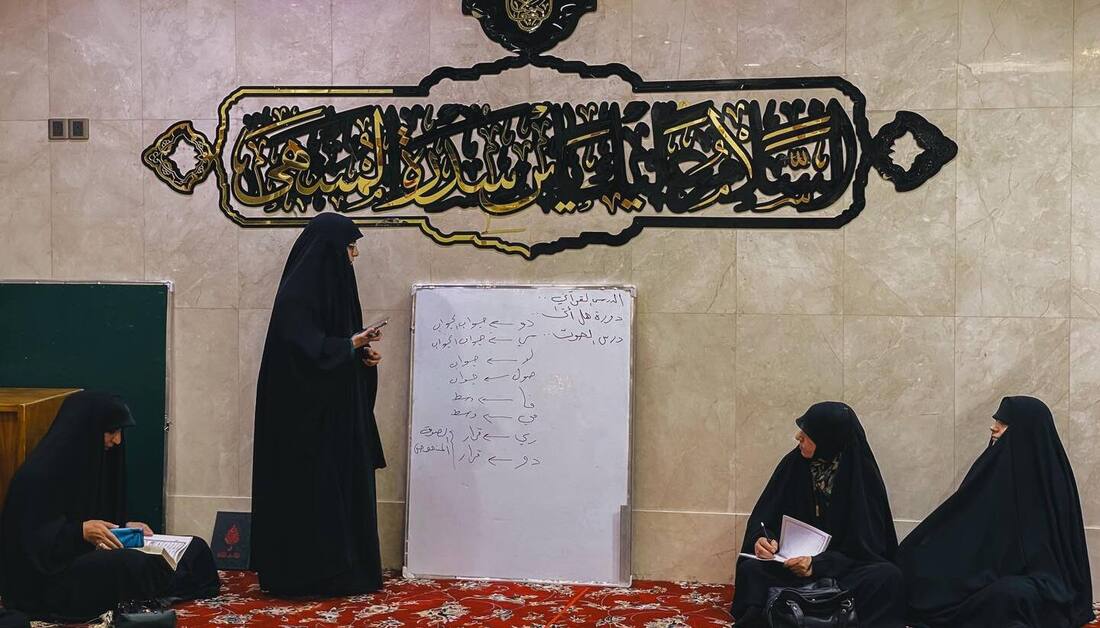 السلام عليك يا من سدرة المنتهى
الدرس القرآني ..
دورة هل أتى ..
درس الصوت ..
دو ← جواب الجواب
سي ← جواب الجواب
لا ← جواب
صول ← جواب
فا ← وسط
مي ← وسط
ري ← قرار
دو ← قرار
الصوت
المنخفض